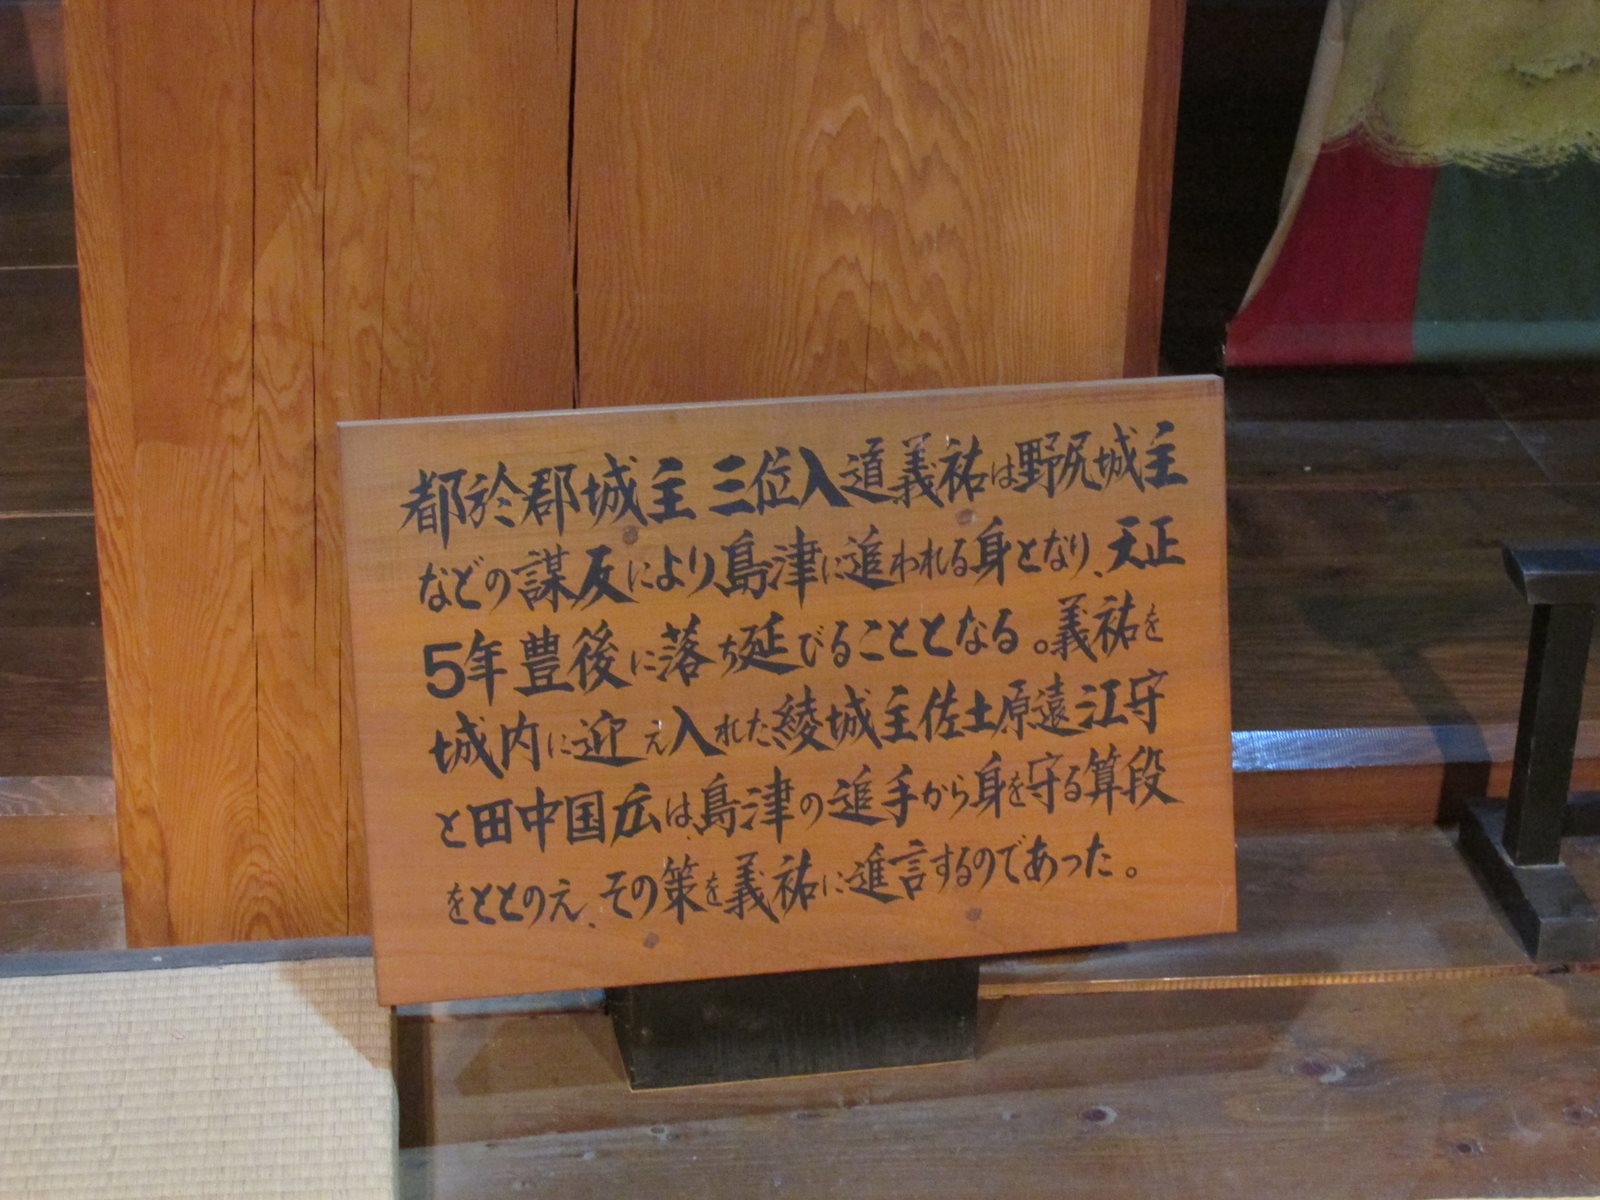 都於郡城主 三位入道義祐は野尻城主
などの謀反により島津に追われる身となり、天正
5年豊後に落ち延びることとなる。義祐を
城内に迎え入れた綾城主佐土原遠江守
と田中国広は、島津の追手から身を守る算段
をととのえ、その策を義祐に進言するのであった。